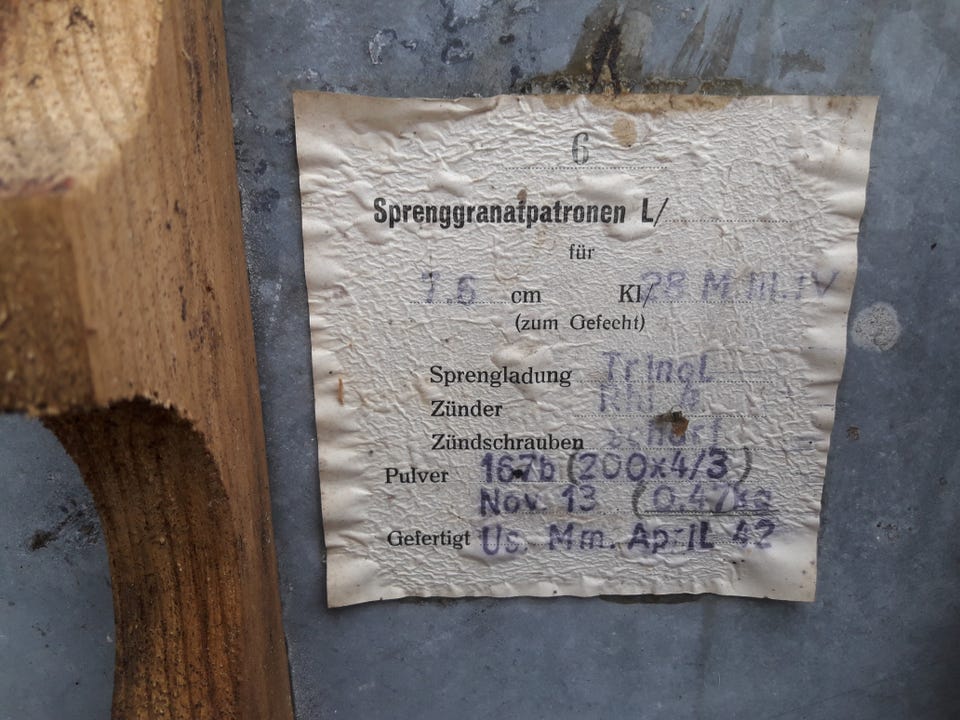 6
Sprenggranatpatronen L/
für
7.5 cm Kl/28 M III.IV
(zum Gefecht)
Sprengladung Tringl
Zünder
Zündschrauben scharf
Pulver 167b (200x4/3)
Nov. 13 (0.47kg
Gefertigt Us. Mm. April 42